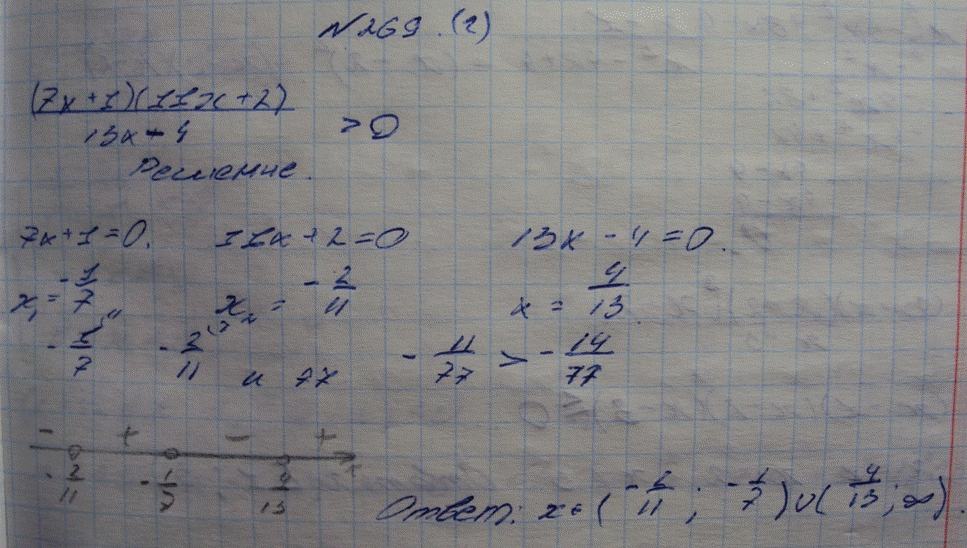 №269.(2)
(7x+1)(11x+2)
13x-4 >0
Решение.
7x+1=0. 11x+2=0 13x-4=0.
x₁=-1/7 x₂=-2/11 x=4/13
-1/7 -2/11 и 77 -11/77 > -14/77
- + - +
-2/11 -1/7 4/13 x
Ответ: x∈(-2/11; -1/7)∪(4/13; ∞).